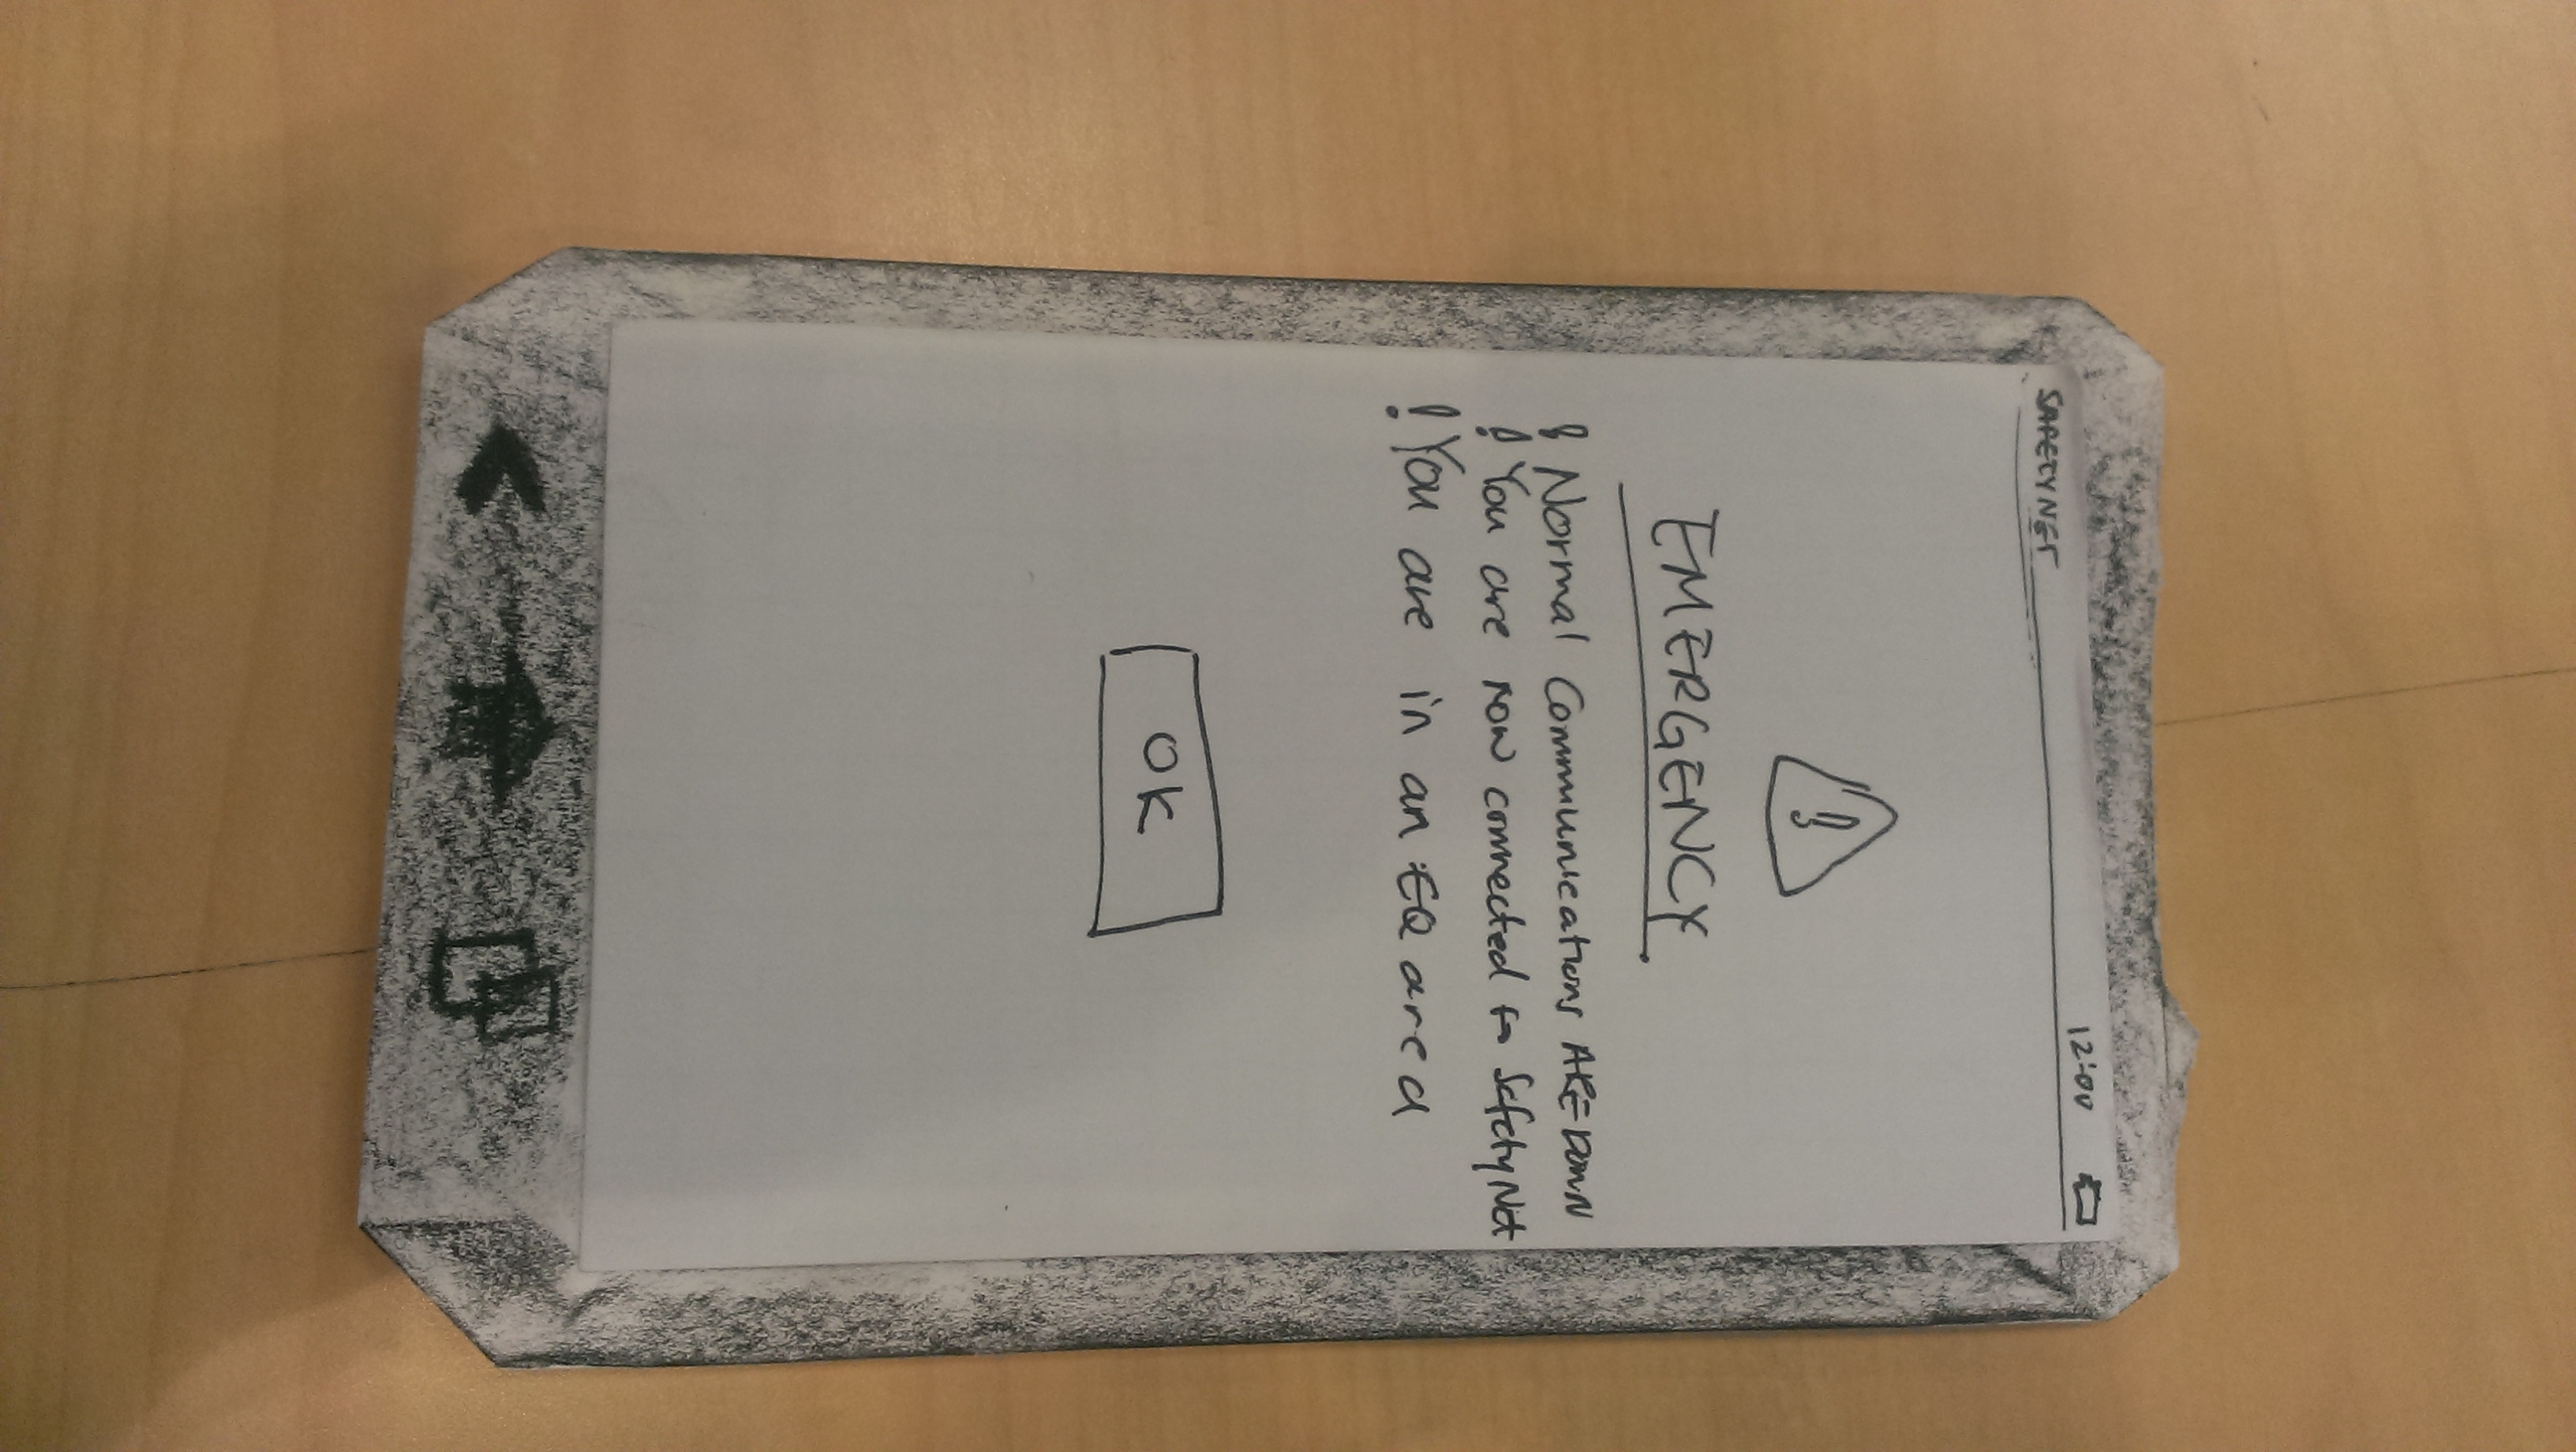 SAFETYNET 12:00
!
EMERGENCY
! Normal Communications ARE DOWN
! You are now connected to SafetyNet
! You are in an EQ area
OK